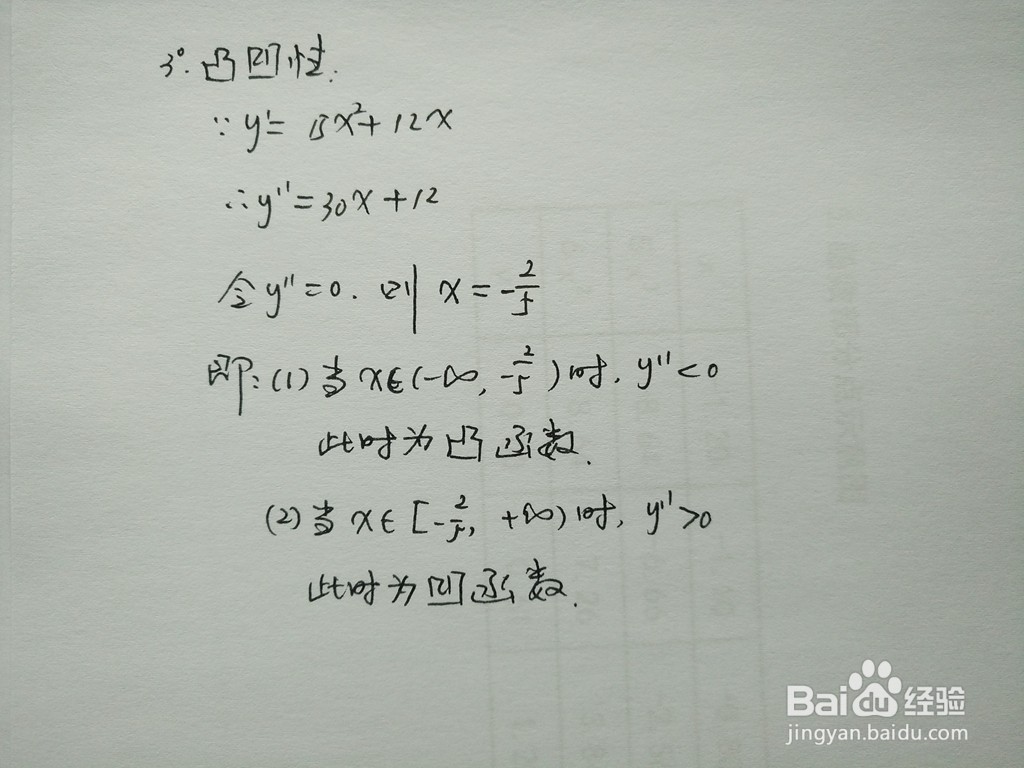 3°. 凸凹性:
∵ y'= 15x²+12x
∴ y''=30x+12
令 y''=0. 则 x=-2/5
即: (1) 当 x∈(-∞, -2/5) 时, y''<0
此时为凸函数.
(2) 当 x∈[-2/5, +∞) 时, y''>0
此时为凹函数.
Baidu 经验
jingyan.baidu.com